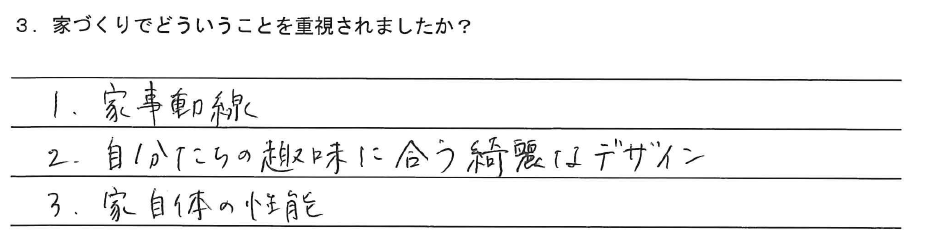 ３．家づくりでどういうことを重視されましたか？
1. 家事動線
2. 自分たちの趣味に合う綺麗なデザイン
3. 家自体の性能